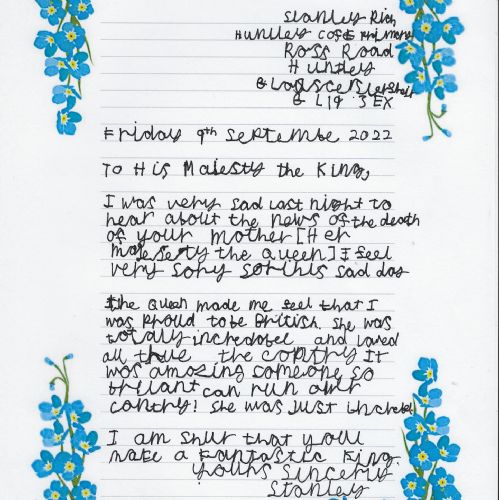 Stanley Rich
Huntley CofE Primary
Ross Road
Huntley
GL19 3EX
Friday 9th Septembe 2022
To His Majesty the King,
I was very sad last night to
hear about the news of the death
of your mother [Her
majesety the queen] I feel
very sory for this sad day
the Queen made me feel that I
was Proud to be British. She was
totally incredobel and loved
all the country It
was amazing someone so
brillant can run our
contry! She was Just
I am shur that you
make a fantastic King.
yours sincerly
Stanley